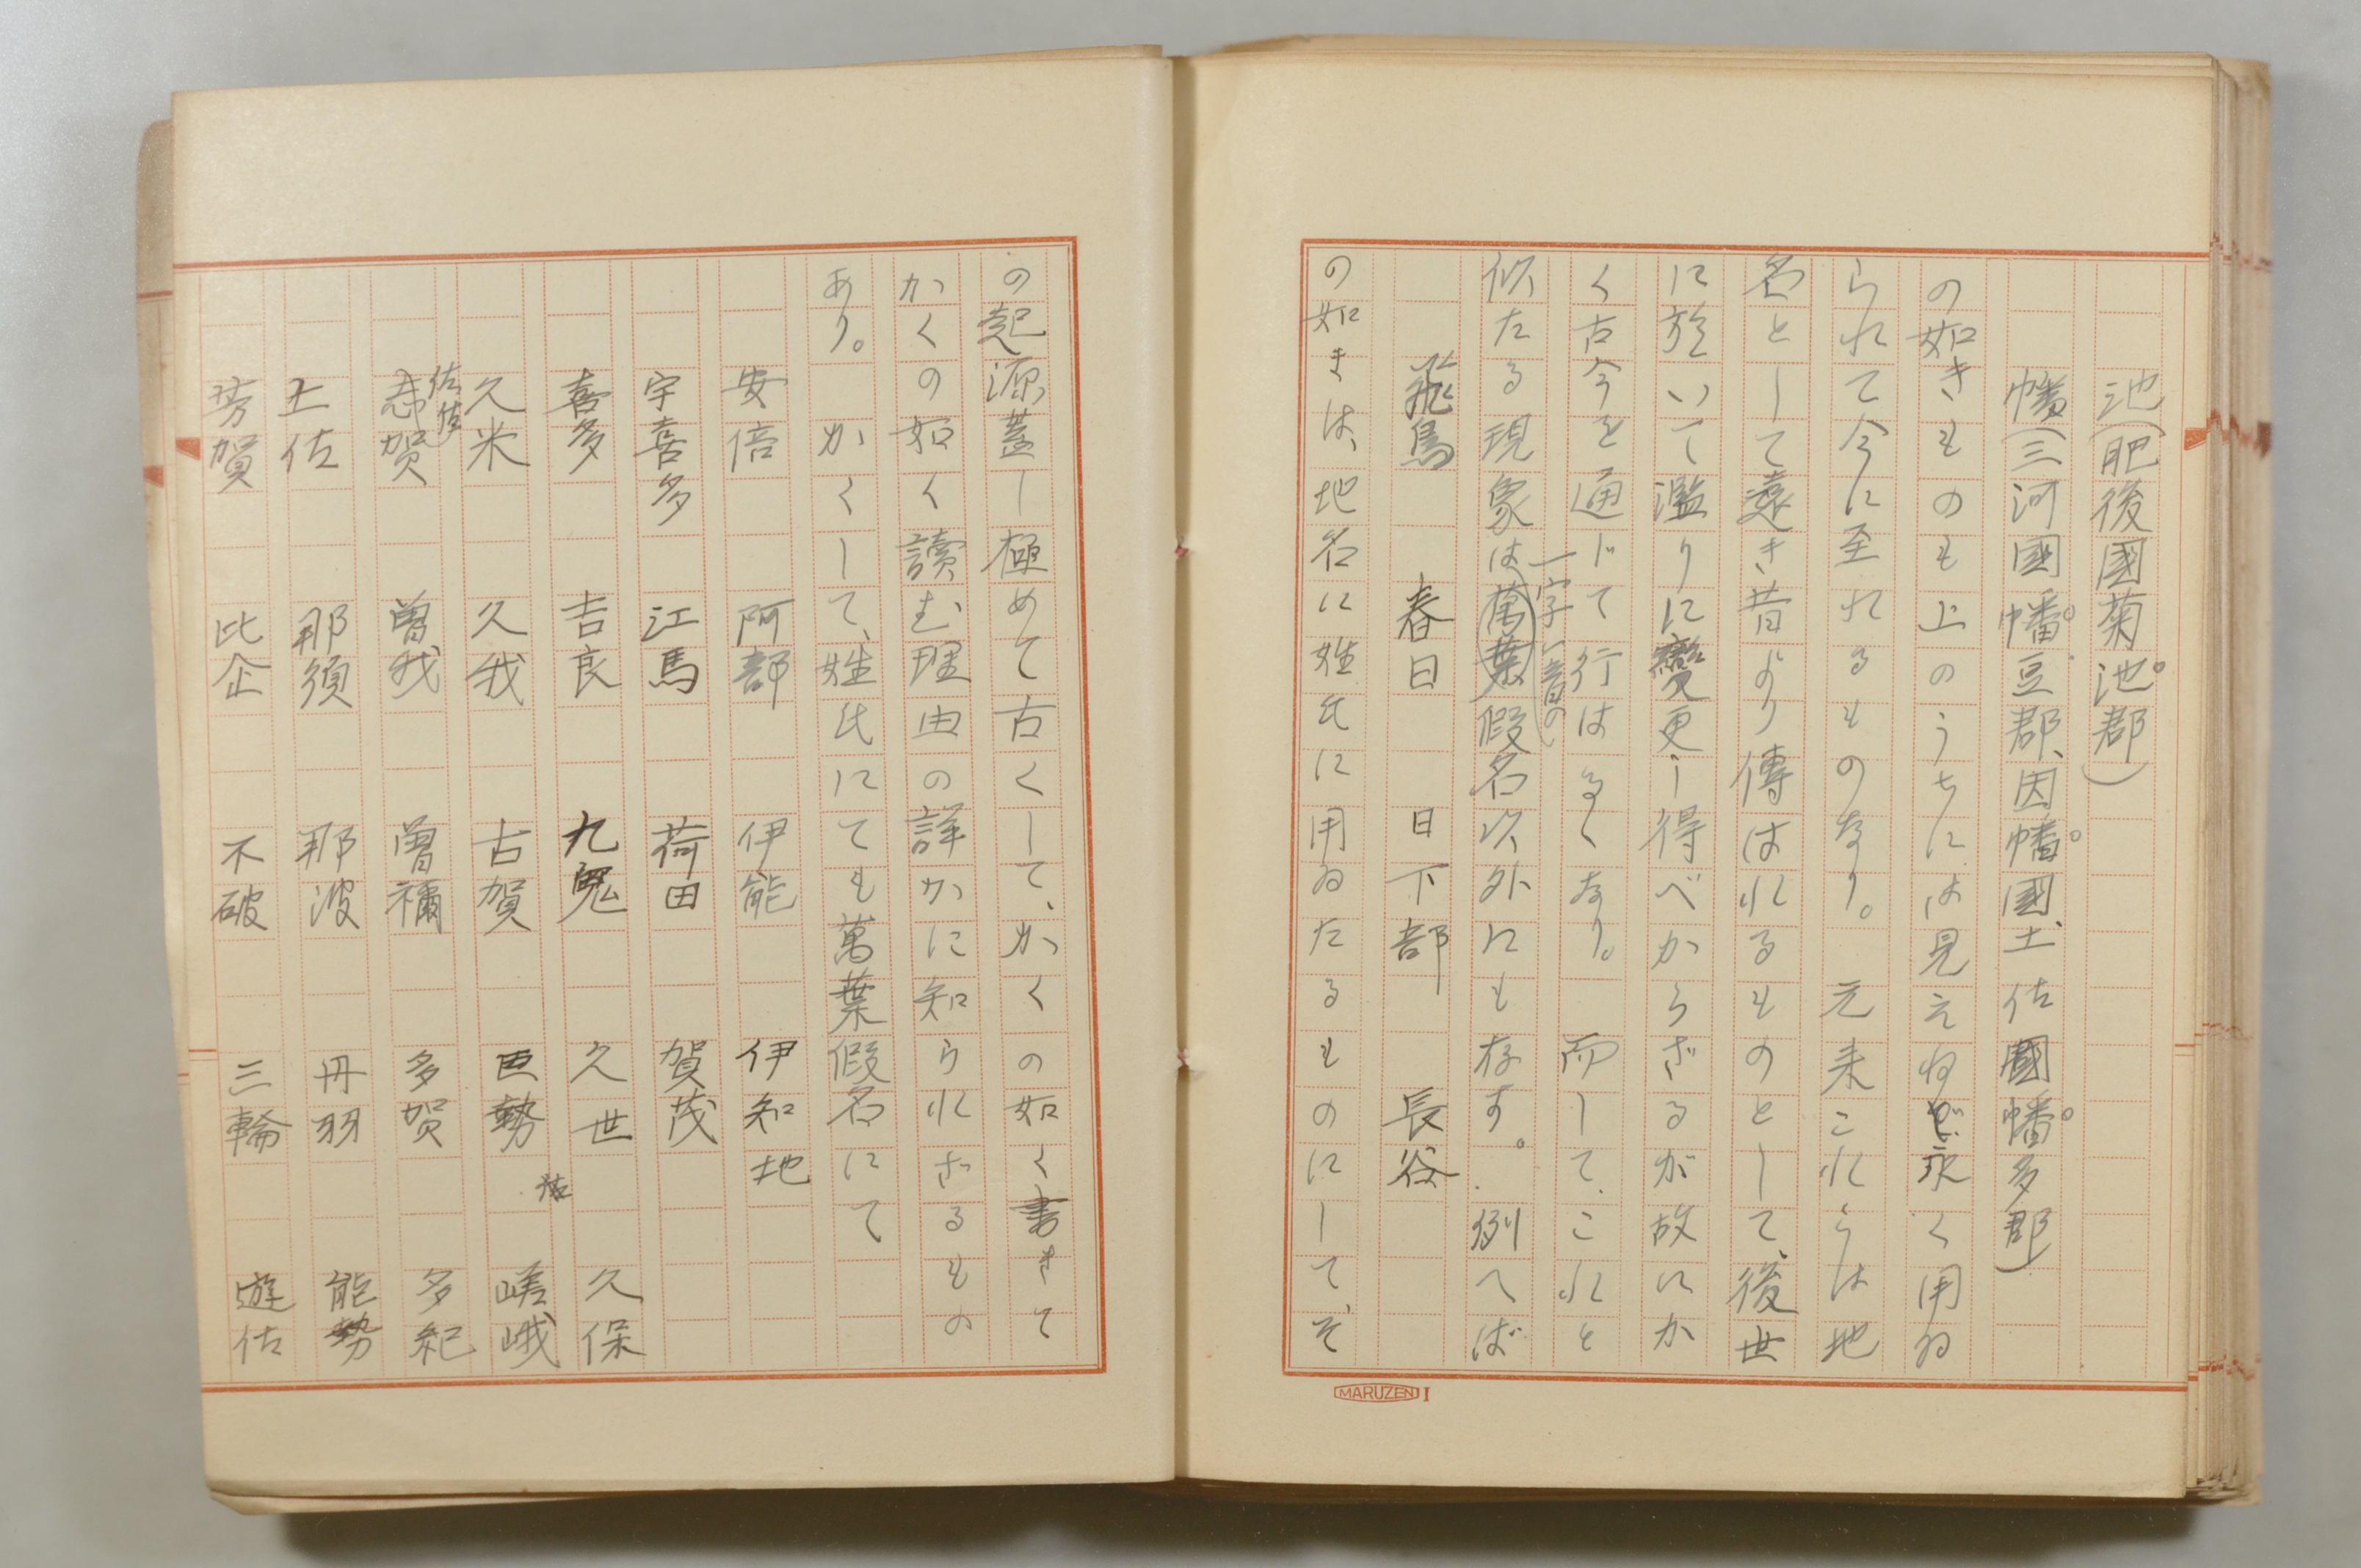 池(肥後國菊池郡)
幡(三河國幡豆郡、因幡國、土佐國幡多郡)
の如きもの也上のうちには見えねど永く用ゐ
られて今に至れるものなり。元来これらは地
名として遠き昔より傳はれるものとして、後世
に於いて濫りに變更し得べからざるが故にか
く古今を通じて行はるゝなり。而して、これと
一字一音の
似たる現象は萬葉假名以外にも存す。例へば
飛鳥 春日 日下部 長谷
の如きは、地名に姓氏に用ゐたるものにして、そ
MARUZEN I
の起源蓋し極めて古くして、かくの如く書きて
かくの如く讀む理由の詳かに知られざるもの
あり。かくして、姓氏にても萬葉假名にて
安倍 阿部 伊能 伊知地
宇喜多 江馬 荷田 賀茂
喜多 吉良 九鬼 久世 久保
久米 久我 古賀 巨勢 嵯峨
佐
志賀 曽我 曽禰 多賀 多紀
土佐 那須 那波 丹羽 能勢
芳賀 比企 不破 三輪 遊佐